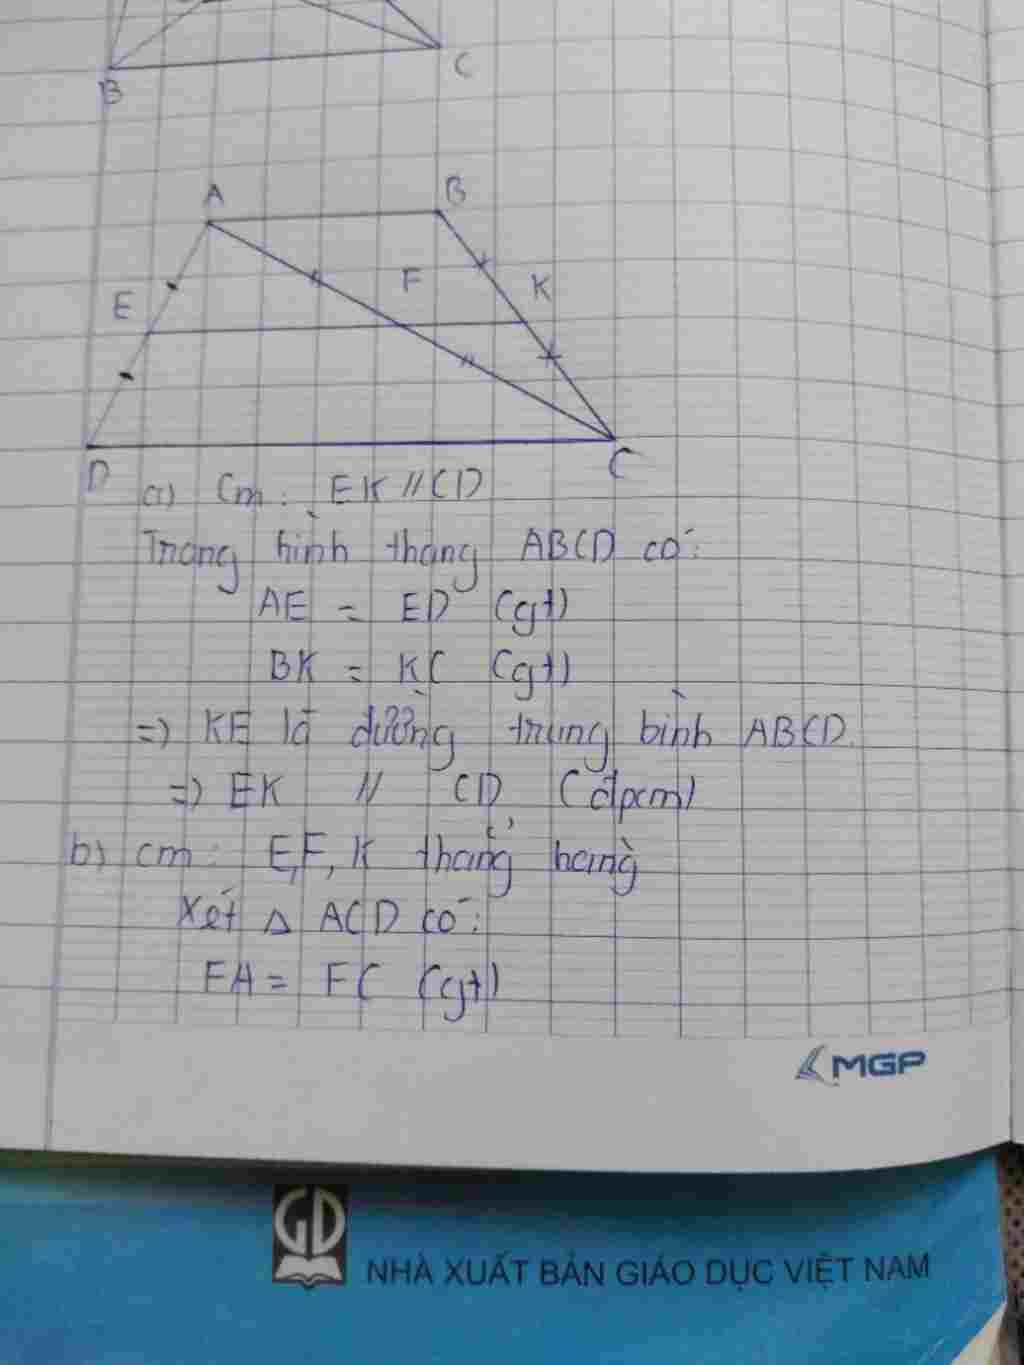 B
C
A
B
E
F
K
D
C
a) Cm: EK // CD
Trong hình thang ABCD có:
AE = ED (gt)
BK = KC (gt)
=> KE là đường trung bình ABCD.
=> EK // CD (đpcm)
b) cm: E, F, K thẳng hàng
Xét Δ ACD có:
FA = FC (gt)
MGP
GD
NHÀ XUẤT BẢN GIÁO DỤC VIỆT NAM